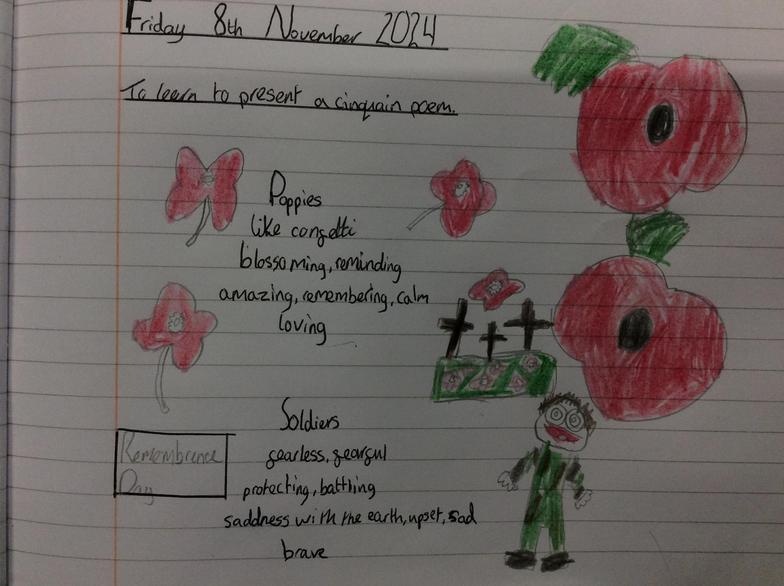 Friday 8th November 2024
To learn to present a cinquain poem.
Poppies
like confetti
blossoming, reminding
amazing, remembering, calm
loving
Soldiers
fearless, fearful
protecting, battling
saddness with the earth, upset, sad
brave
Remembrence
Day